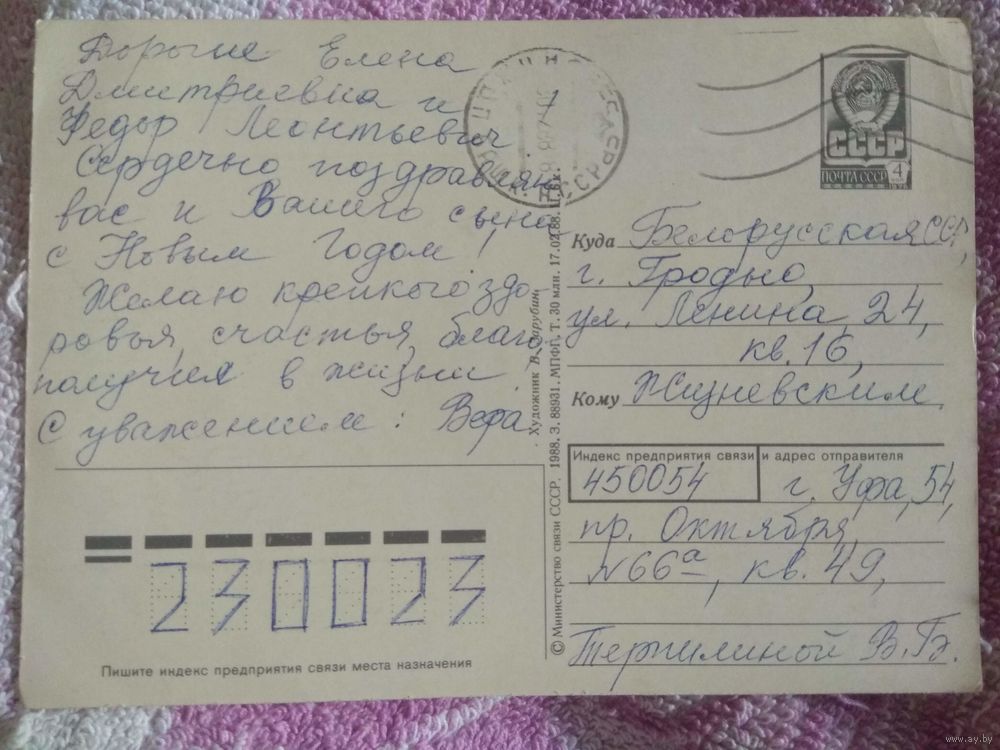 Дорогие Елена
Дмитриевна и
Федор Леонтьевич
Сердечно поздравляю
вас и Вашего сына
с Новым Годом!
Желаю крепкого здо-
ровья, счастья, благо-
получия в жизни.
С уважением: Вера.
СССР
ПОЧТА СССР
4
Куда Белорусская ССР,
г. Гродно,
ул. Ленина, 24,
кв. 16,
Кому Жизневским.
Индекс предприятия связи и адрес отправителя
450054 г. Уфа, 54,
пр. Октября,
№66а, кв. 49,
Терпилиной В.Б.
230023
Пишите индекс предприятия связи места назначения
© Министерство связи СССР. 1988. З. 88931. МПФГ. Т. 30 млн. 17.02.88. Ц. 5 к.
Художник В. Зарубин
www.ay.by